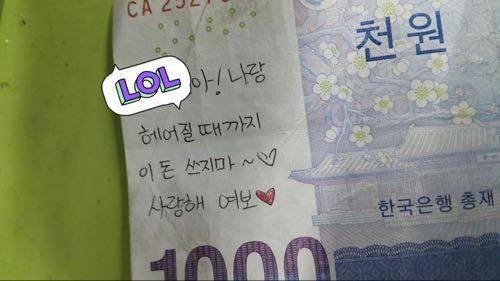 천원
LOL
아! 나랑
헤어질 때까지
이 돈 쓰지마 ~♡
사랑해 여보♥
한국은행 총재
1000